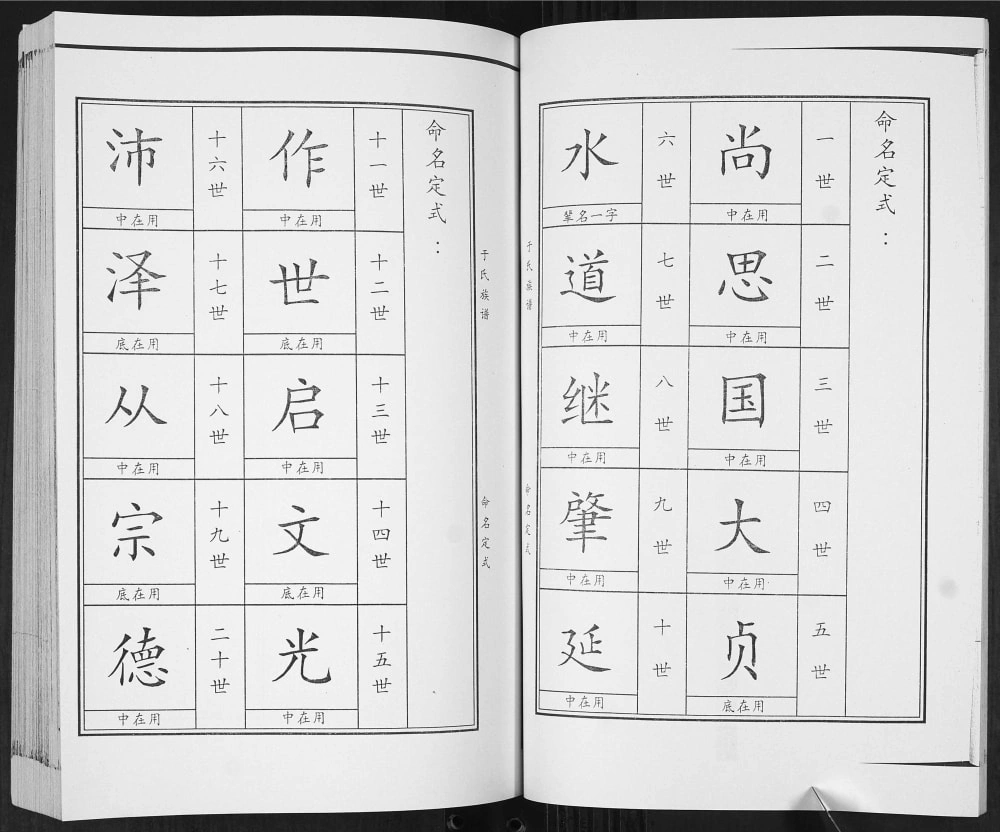 命名定式：
一世
尚
用在中
二世
思
用在中
三世
国
用在中
四世
大
用在中
五世
贞
用在底
六世
水
字一名辈
七世
道
用在中
八世
继
用在中
九世
肇
用在中
十世
延
用在中
于氏族谱
命名定式
于氏族谱
命名定式
命名定式：
十一世
作
用在中
十二世
世
用在底
十三世
启
用在中
十四世
文
用在底
十五世
光
用在中
十六世
沛
用在中
十七世
泽
用在底
十八世
从
用在中
十九世
宗
用在底
二十世
德
用在中